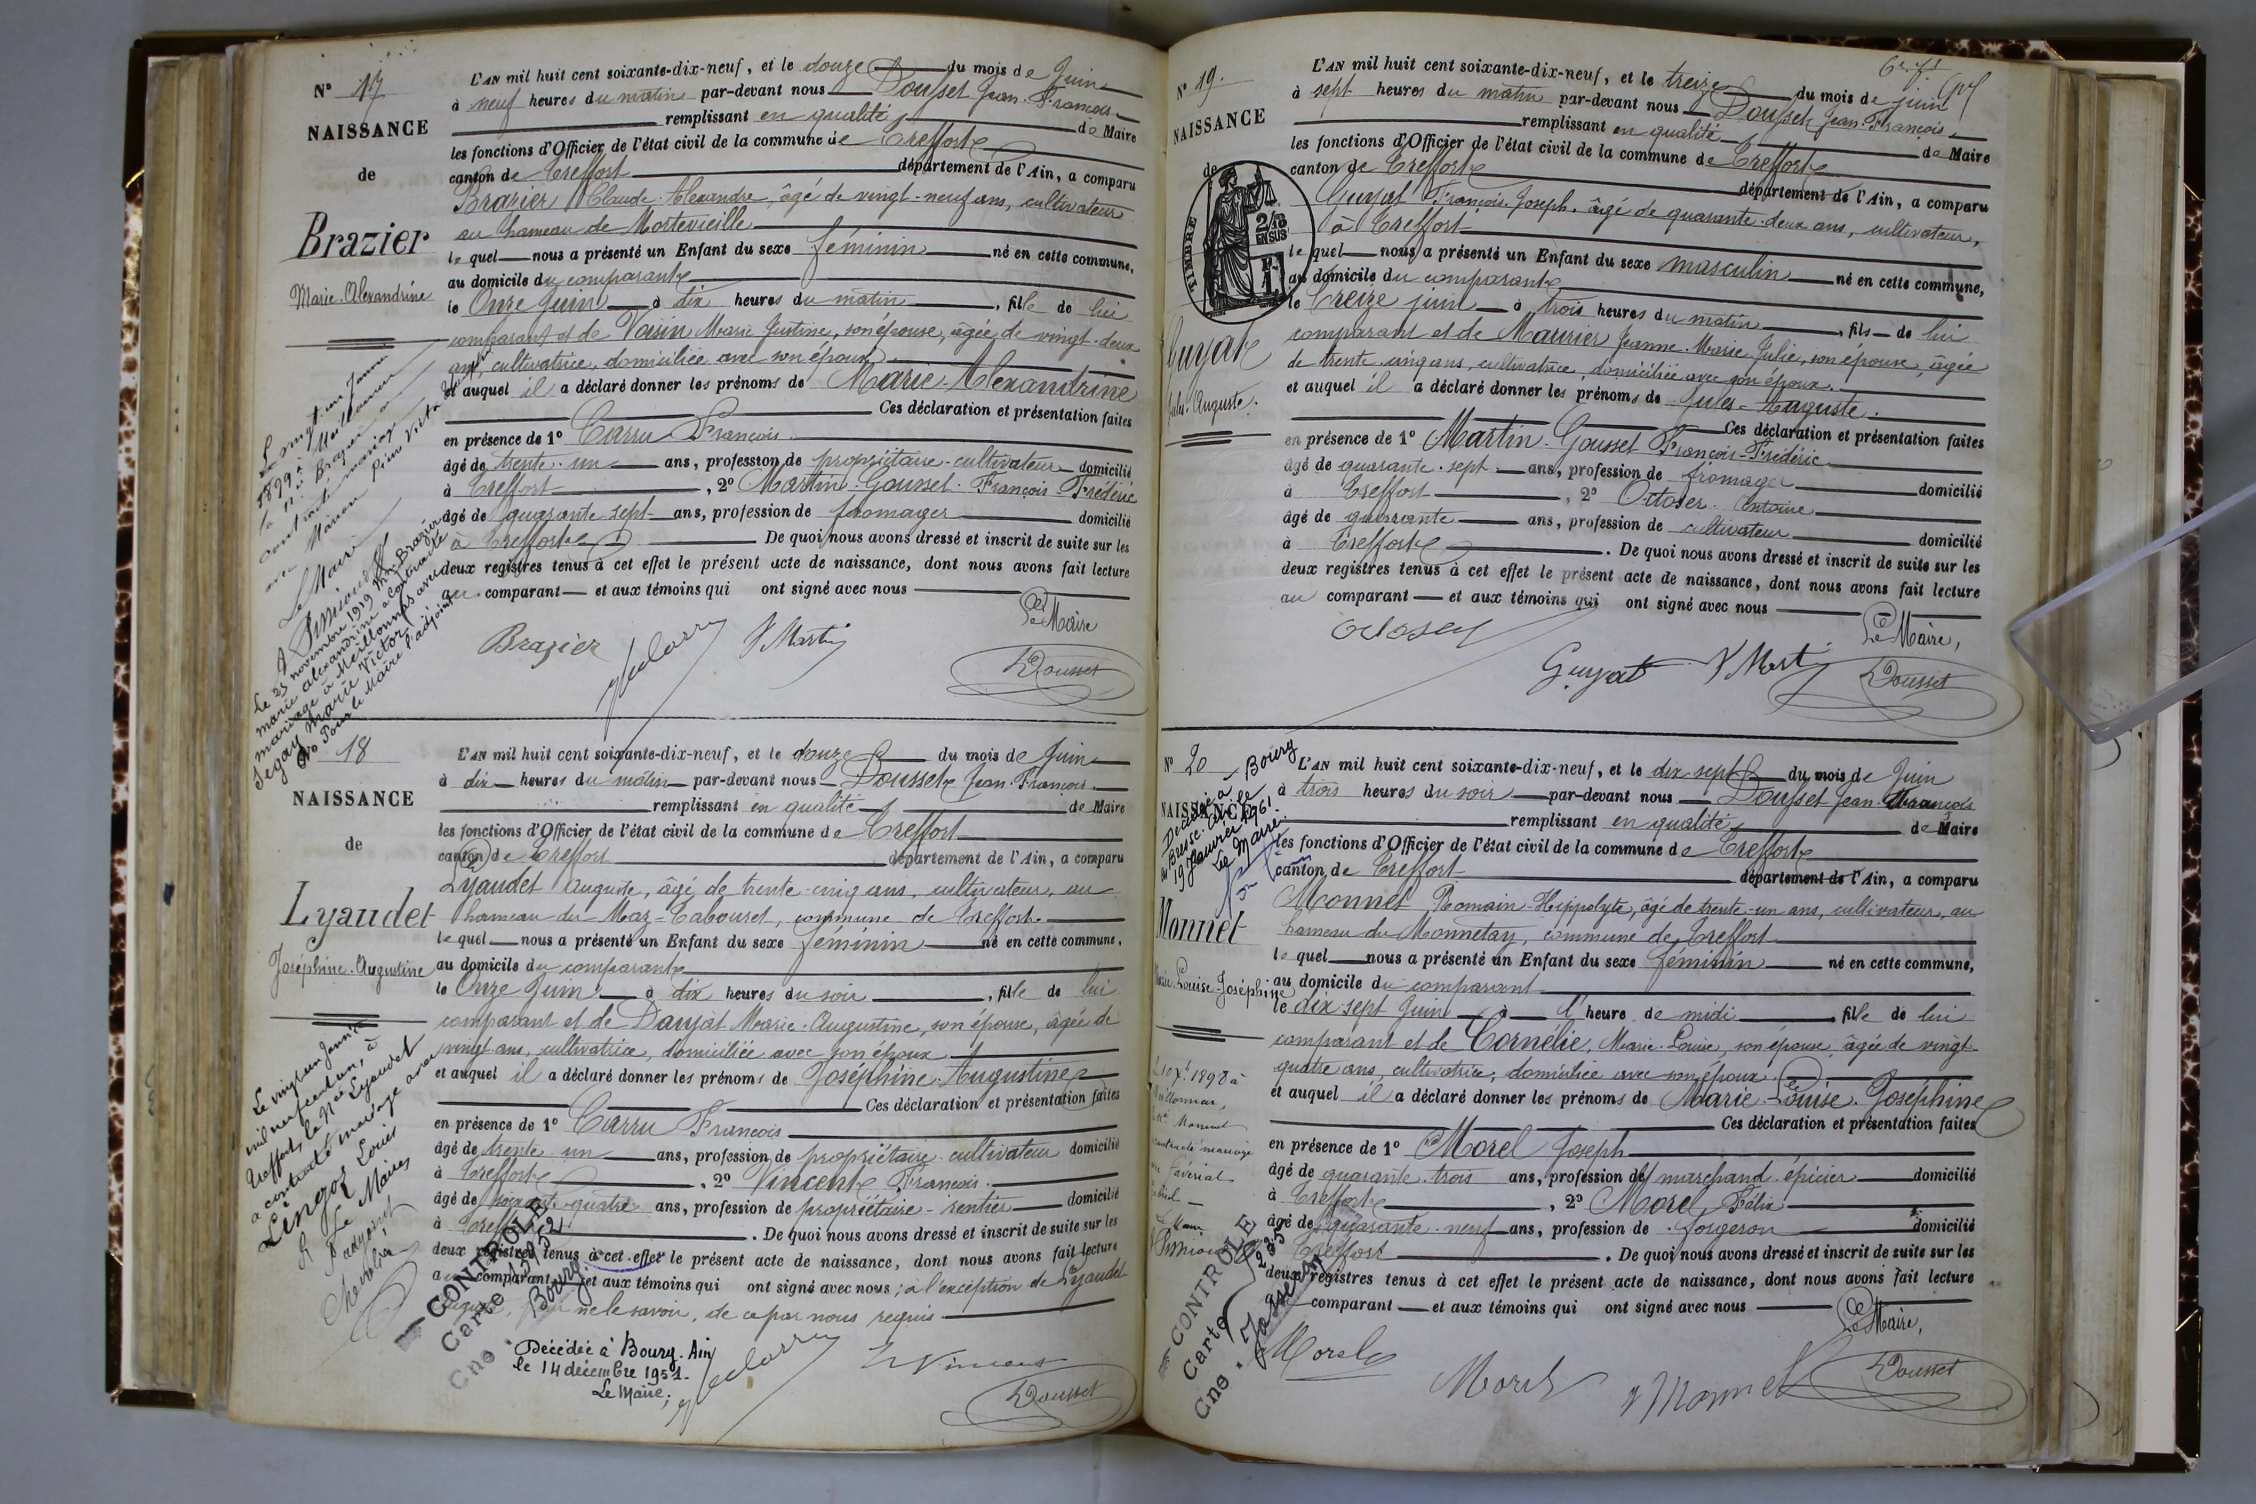 N° 17
NAISSANCE
de
Brazier
Marie-Alexandrine
L'AN mil huit cent soixante-dix-neuf, et le douze du mois de Juin
à neuf heures du matin par-devant nous Dousset Jean-François
remplissant en qualité de Maire
les fonctions d'Officier de l'état civil de la commune de Treffort
canton de Treffort département de l'Ain, a comparu
Brazier Claude-Alexandre, âgé de vingt-neuf ans, cultivateur
au hameau de Mortevieille
lequel nous a présenté un Enfant du sexe féminin né en cette commune,
au domicile du comparant
le Onze Juin à dix heures du matin, fille de lui
comparant et de Voisin Marie Justine, son épouse, âgée de vingt-deux
ans, cultivatrice, domiciliée avec son époux
et auquel il a déclaré donner les prénoms de Marie-Alexandrine
Ces déclaration et présentation faites
en présence de 1° Carru François
âgé de trente-un ans, profession de propriétaire-cultivateur domicilié
à Treffort, 2° Martin-Gousset François-Frédéric
âgé de quarante sept ans, profession de fromager domicilié
à Treffort De quoi nous avons dressé et inscrit de suite sur les
deux registres tenus à cet effet le présent acte de naissance, dont nous avons fait lecture
au comparant et aux témoins qui ont signé avec nous
Le Maire
Brazier
Martin
Dousset
Le 25 novembre 1919 Brazier
marie alexandrine a contracté
mariage à Meillonnas avec
Tegay Marie Victor
Pour le Maire l'adjoint
N° 18
NAISSANCE
de
Lyaudet
Joséphine-Augustine
L'AN mil huit cent soixante-dix-neuf, et le douze du mois de Juin
à dix heures du matin par-devant nous Dousset Jean-François
remplissant en qualité de Maire
les fonctions d'Officier de l'état civil de la commune de Treffort
canton de Treffort département de l'Ain, a comparu
Lyaudet Auguste, âgé de trente-cinq ans, cultivateur, au
hameau du Maz-Tabouret, commune de Treffort
lequel nous a présenté un Enfant du sexe féminin né en cette commune,
au domicile du comparant
le Onze Juin à dix heures du soir, fille de lui
comparant et de Daujat Marie-Augustine, son épouse, âgée de
vingt ans, cultivatrice, domiciliée avec son époux
et auquel il a déclaré donner les prénoms de Joséphine-Augustine
Ces déclaration et présentation faites
en présence de 1° Carru François
âgé de trente-un ans, profession de propriétaire-cultivateur domicilié
à Treffort, 2° Vincent François
âgé de soixante-quatre ans, profession de propriétaire-rentier domicilié
à Treffort. De quoi nous avons dressé et inscrit de suite sur les
deux registres tenus à cet effet le présent acte de naissance, dont nous avons fait lecture
au comparant et aux témoins qui ont signé avec nous, à l'exception de Lyaudet
Auguste, pour ne le savoir, de ce par nous requis
Vincent
Dousset
Le vingt un Janvier
mil neuf cent un, à
Treffort, la Née Lyaudet
a contracté mariage avec
Lingos Louis
Le Maire
CONTROLE
Carte 1952
Cne Bourg
Décédée à Bourg-Ain
le 14 décembre 1951-
Le Maire;
N° 19.
NAISSANCE
de
TIMBRE
2/10
EN SUS
Guyat
Jules-Auguste.
L'AN mil huit cent soixante-dix-neuf, et le treize du mois de juin
à sept heures du matin par-devant nous Dousset Jean-François
remplissant en qualité de Maire
les fonctions d'Officier de l'état civil de la commune de Treffort
canton de Treffort département de l'Ain, a comparu
Guyat François-Joseph, âgé de quarante-deux ans, cultivateur,
à Treffort
lequel nous a présenté un Enfant du sexe masculin né en cette commune,
au domicile du comparant
le Treize juin à trois heures du matin, fils de lui
comparant et de Maurier Jeanne-Marie Julie, son épouse, âgée
de trente-cinq ans, cultivatrice, domiciliée avec son époux.
et auquel il a déclaré donner les prénoms de Jules-Auguste.
Ces déclaration et présentation faites
en présence de 1° Martin-Gousset François-Frédéric
âgé de quarante-sept ans, profession de fromager domicilié
à Treffort, 2° Ottoser Antoine
âgé de quarante ans, profession de cultivateur domicilié
à Treffort. De quoi nous avons dressé et inscrit de suite sur les
deux registres tenus à cet effet le présent acte de naissance, dont nous avons fait lecture
au comparant et aux témoins qui ont signé avec nous
Le Maire,
Guyat
Martin
Dousset
N° 20
NAISSANCE
Décédée à Bourg
19 Janvier 1961.
Le Maire.
Monnet
Marie-Louise-Joséphine
L'AN mil huit cent soixante-dix-neuf, et le dix-sept du mois de Juin
à trois heures du soir par-devant nous Dousset Jean-François
remplissant en qualité de Maire
les fonctions d'Officier de l'état civil de la commune de Treffort
canton de Treffort département de l'Ain, a comparu
Monnet Romain-Hippolyte, âgé de trente-un ans, cultivateur, au
hameau du Monnetay, commune de Treffort
lequel nous a présenté un Enfant du sexe féminin né en cette commune,
au domicile du comparant
le dix-sept Juin à l'heure de midi, fille de lui
comparant et de Cornélie, Marie-Louise, son épouse, âgée de vingt-
quatre ans, cultivatrice, domiciliée avec son époux
et auquel il a déclaré donner les prénoms de Marie-Louise-Joséphine
Ces déclaration et présentation faites
en présence de 1° Morel Joseph
âgé de quarante-trois ans, profession de marchand épicier domicilié
à Treffort, 2° Morel Félix
âgé de quarante-neuf ans, profession de forgeron domicilié
à Treffort. De quoi nous avons dressé et inscrit de suite sur les
deux registres tenus à cet effet le présent acte de naissance, dont nous avons fait lecture
au comparant et aux témoins qui ont signé avec nous
Le Maire,
Morel
Morel
Monnet
Dousset
CONTROLE
Carte
Cne